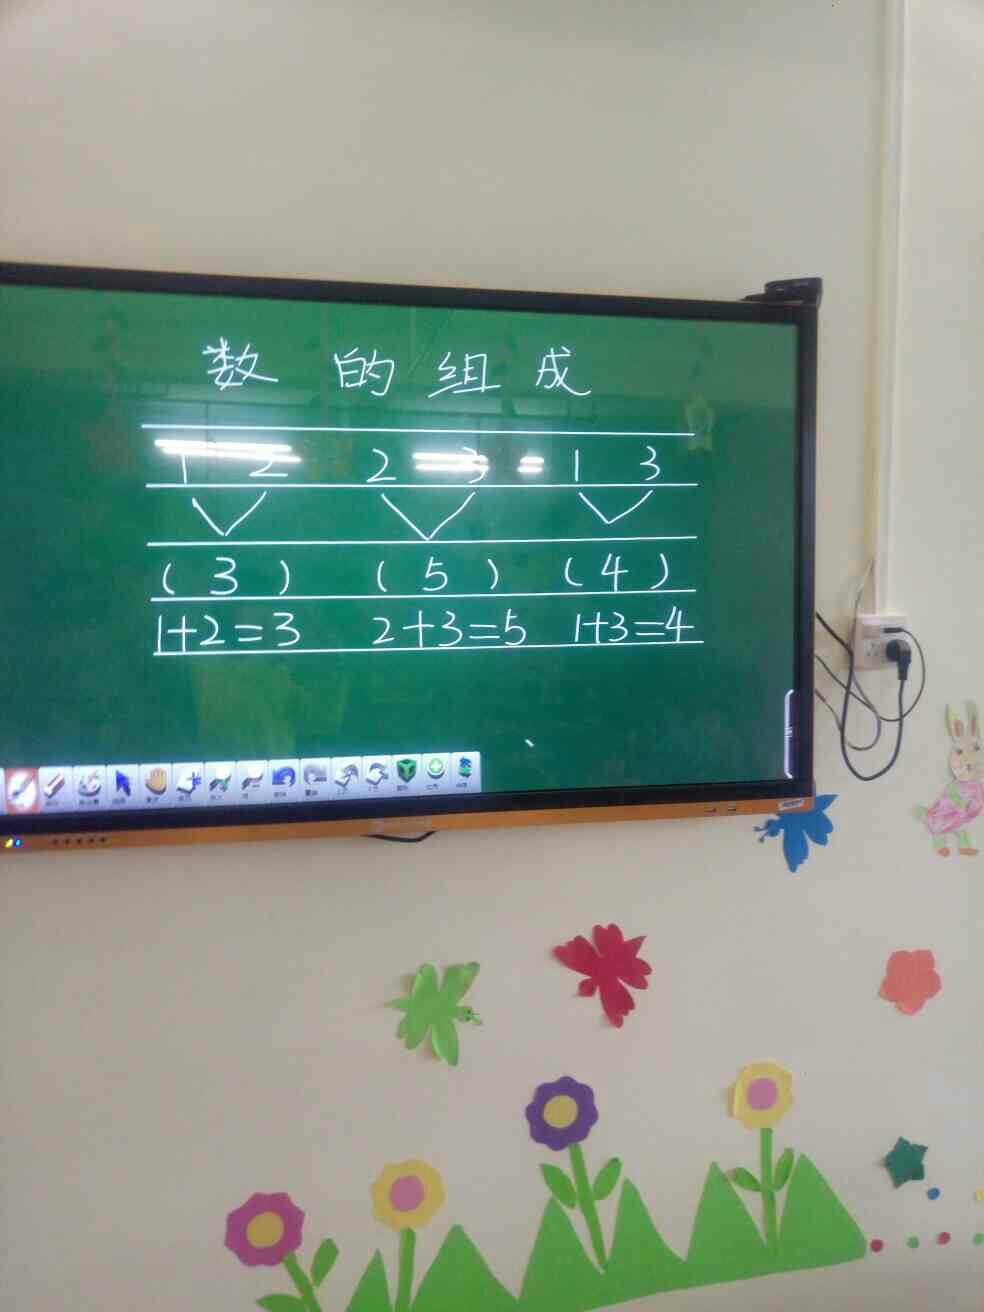 数的组成
1 2 2 3 1 3
( 3 ) ( 5 ) ( 4 )
1+2=3 2+3=5 1+3=4